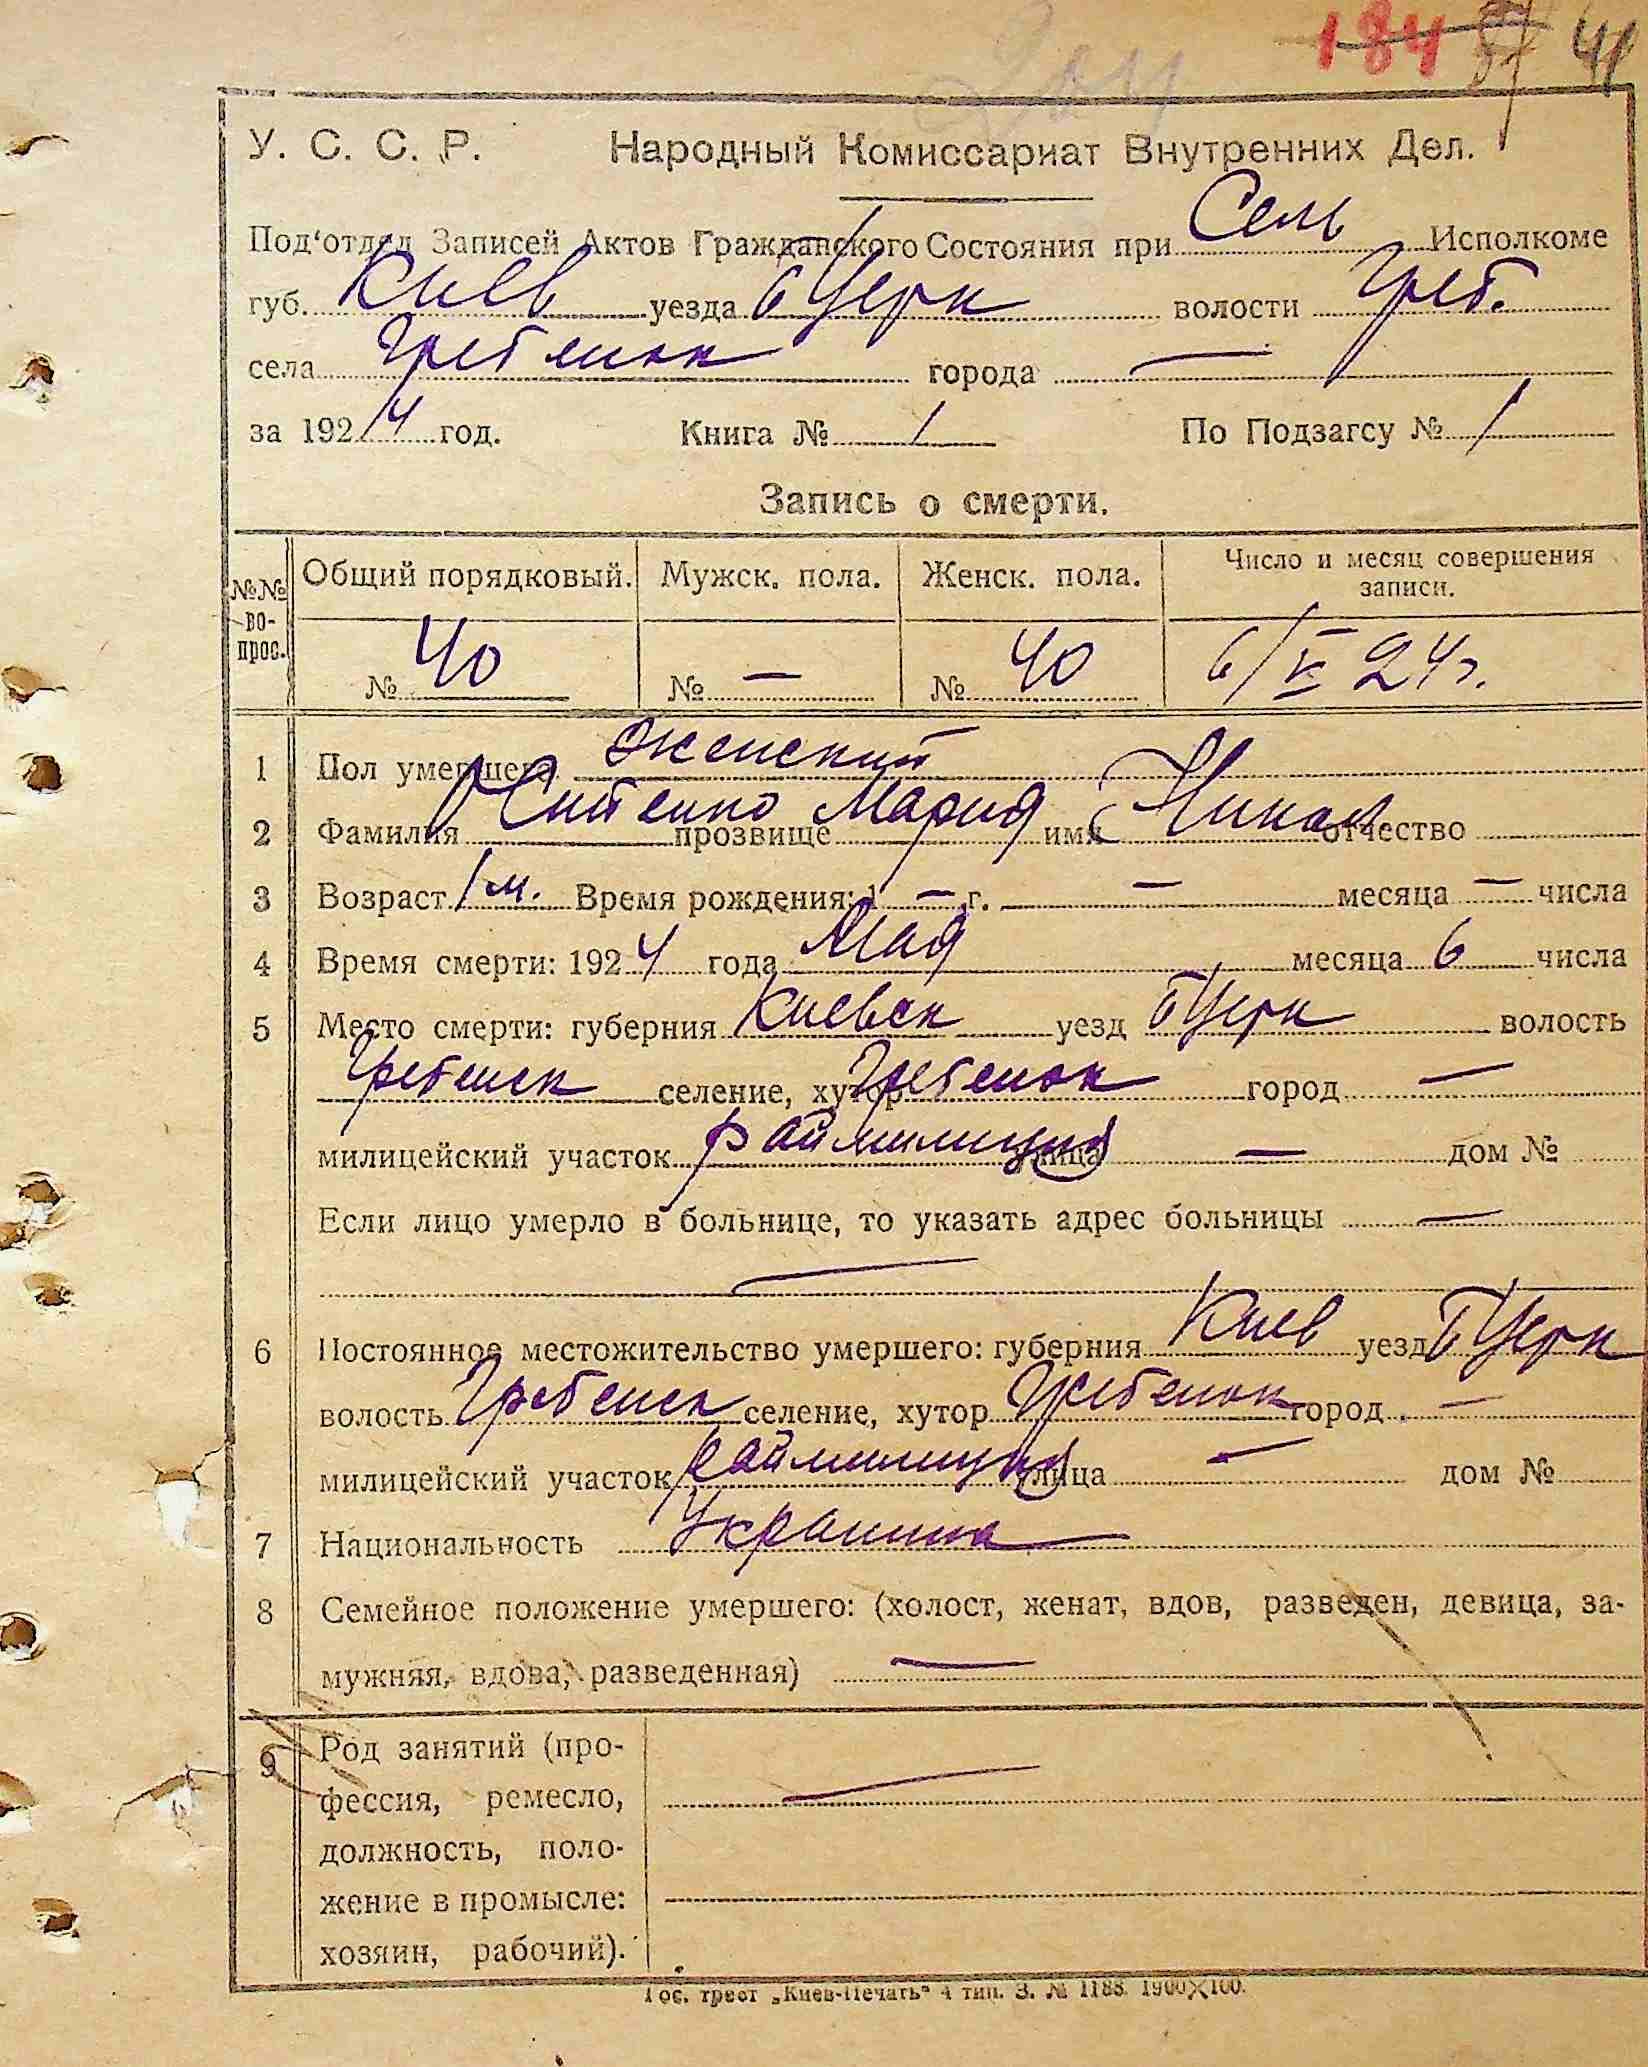 184 41
У. С. С. Р. Народный Комиссариат Внутренних Дел.
Под'отдел Записей Актов Гражданского Состояния при Сель Исполкоме
губ. Киев уезда БЦерк волости Греб.
села Гребенок города —
за 1924 год. Книга № 1 По Подзагсу № 1
Запись о смерти.
№№ вопрос. Общий порядковый. Мужск. пола. Женск. пола. Число и месяц совершения записи.
№ 40 № — № 40 6/V 24 г.
1 Пол умершего женский
2 Фамилия прозвище Мария имя Никол отчество
3 Возраст 1 м. Время рождения: 1 — г. — месяца — числа
4 Время смерти: 1924 года Мая месяца 6 числа
5 Место смерти: губерния Киевск уезд БЦерк волость
Гребенск селение, хутор Гребенок город —
милицейский участок раймилиция улица — дом №
Если лицо умерло в больнице, то указать адрес больницы —
—
6 Постоянное местожительство умершего: губерния Киев уезд БЦерк
волость Гребенск селение, хутор Гребенок город —
милицейский участок раймилиция улица — дом №
7 Национальность Украинка
8 Семейное положение умершего: (холост, женат, вдов, разведен, девица, за-
мужняя, вдова, разведенная) —
9 Род занятий (про-
фессия, ремесло, —
должность, поло-
жение в промысле:
хозяин, рабочий).
Гос. трест „Киев-Печать" 4 тип. З. № 1188. 1900×100.